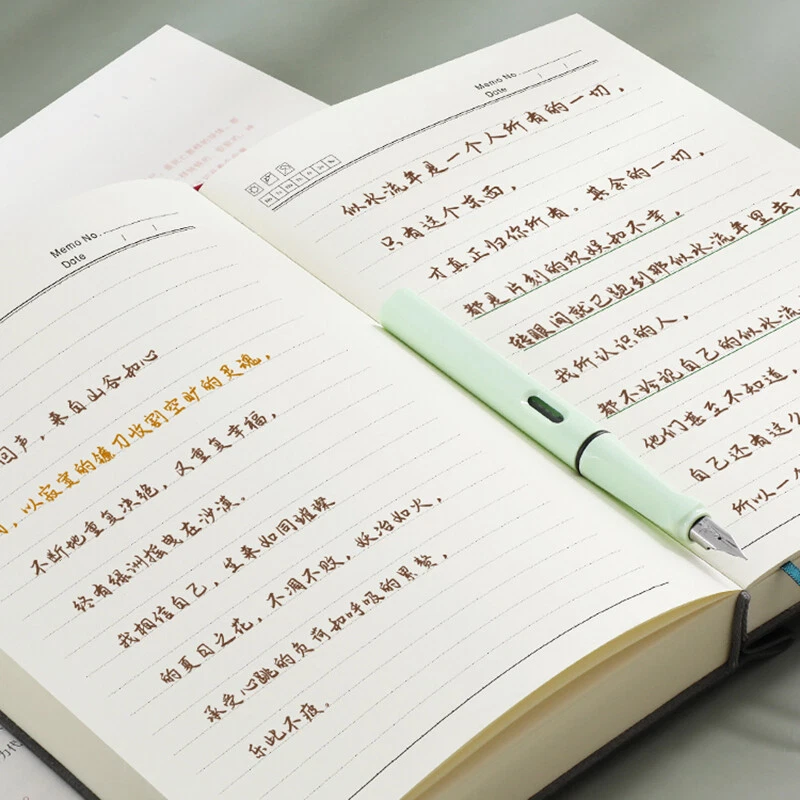 Memo No.
Date / /
回声，来自山谷和心
间，以寂寞的镰刀收割空旷的灵魂，
不断地重复决绝，又重复幸福，
终有绿洲摇曳在沙漠。
我相信自己，生来如同璀璨
的夏日之花，不凋不败，妖冶如火，
承受心跳的负荷和呼吸的累赘，
乐此不疲。
Memo No.
Date / /
Mo Tu We Th Fr Sa Su
似水流年是一个人所有的一切，
只有这个东西，
才真正归你所有。其余的一切，
都是片刻的欢娱和不幸，
转眼间就已跑到那似水流年里去了
我所认识的人，
都不珍视自己的似水流
他们甚至不知道，
自己还有这么
所以一个